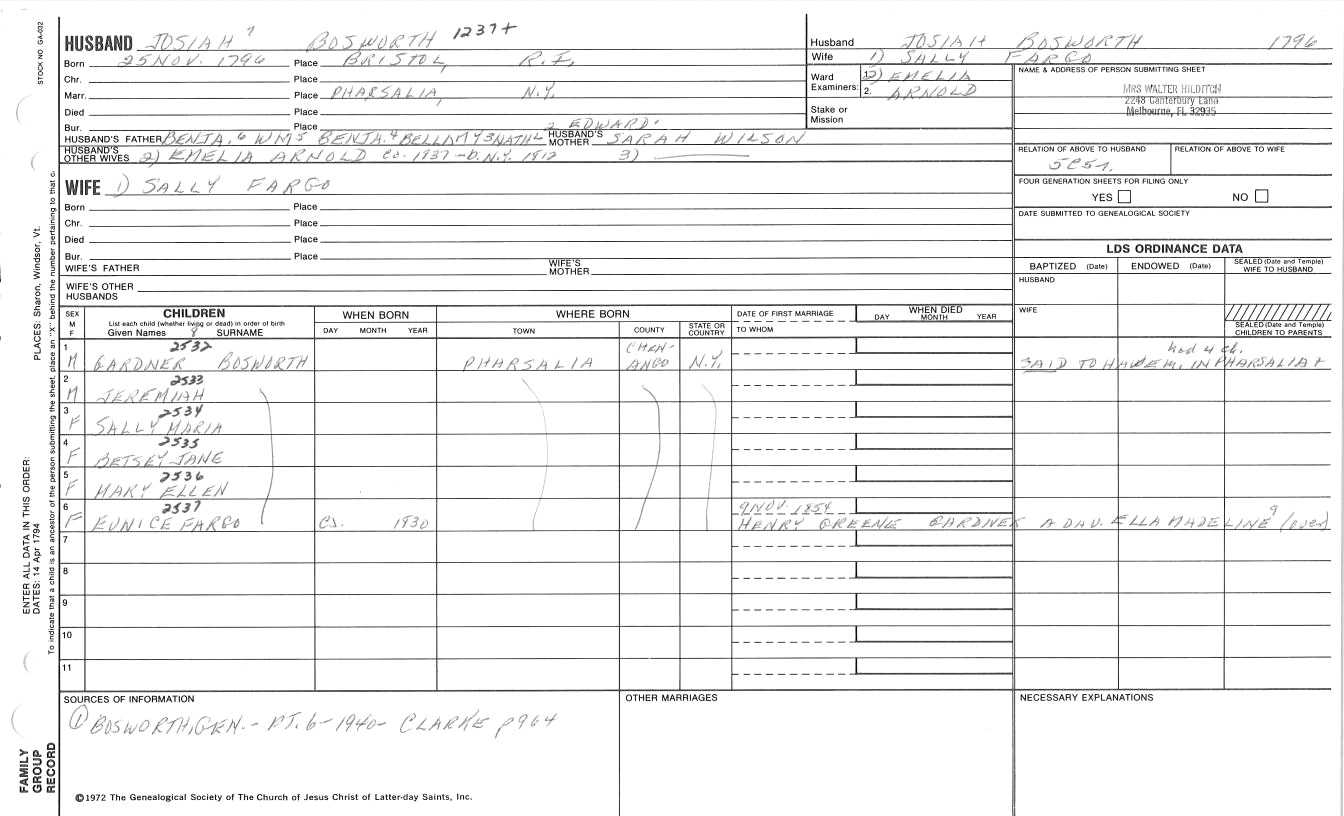 STOCK NO. GA-032
HUSBAND JOSIAH 7 BOSWORTH 1237+
Born 25 NOV. 1796 Place BRISTOL, R.I,
Chr. Place
Marr. Place PHARSALIA, N.Y.
Died Place
Bur. Place
2 EDWARD 1
HUSBAND'S FATHER BENJA. 6 WM 5 BENJA. 4 BELLAMY 3 NATHL HUSBAND'S MOTHER SARAH WILSON
HUSBAND'S OTHER WIVES 2) EMELIA ARNOLD 3)
Husband JOSIAH BOSWORTH 1796
Wife 1) SALLY FARGO
Ward 2) EMELIA
Examiners: 2. ARNOLD
Stake or Mission
NAME & ADDRESS OF PERSON SUBMITTING SHEET
MRS WALTER HILDITCH
2248 Canterbury Lane
Melbourne, FL 32935
RELATION OF ABOVE TO HUSBAND RELATION OF ABOVE TO WIFE
FOUR GENERATION SHEETS FOR FILING ONLY
YES NO
DATE SUBMITTED TO GENEALOGICAL SOCIETY
WIFE 1) SALLY FARGO
Born Place
Chr. Place
Died Place
Bur. Place
WIFE'S FATHER WIFE'S MOTHER
WIFE'S OTHER HUSBANDS
LDS ORDINANCE DATA
BAPTIZED (Date) ENDOWED (Date) SEALED (Date and Temple) WIFE TO HUSBAND
HUSBAND
WIFE
SEALED (Date and Temple) CHILDREN TO PARENTS
SEX M F
CHILDREN
List each child (whether living or dead) in order of birth
Given Names 8 SURNAME
WHEN BORN
DAY MONTH YEAR
WHERE BORN
TOWN COUNTY STATE OR COUNTRY
DATE OF FIRST MARRIAGE
TO WHOM
WHEN DIED
DAY MONTH YEAR
1 2532
M GARDNER BOSWORTH PHARSALIA CHENANGO N.Y. had 4 ch.
SAID TO HAVE M. IN PHARSALIA +
2 2533
M JEREMIAH
3 2534
F SALLY MARIA
4 2535
F BETSEY JANE
5 2536
F MARY ELLEN
6 2537 9 NOV. 1854
F EUNICE FARGO HENRY GREENE GARDNER A DAU. ELLA MADELINE 9 (over)
7
8
9
10
11
SOURCES OF INFORMATION
① BOSWORTH, GEN. - PT. 6 - 1940 - CLARKE p964
OTHER MARRIAGES
NECESSARY EXPLANATIONS
©1972 The Genealogical Society of The Church of Jesus Christ of Latter-day Saints, Inc.
PLACES: Sharon, Windsor, Vt.
ENTER ALL DATA IN THIS ORDER:
DATES: 14 Apr 1794
To indicate that a child is an ancestor of the person submitting the sheet, place an "X" behind the number pertaining to that c.
FAMILY GROUP RECORD